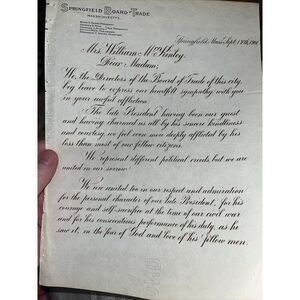 SPRINGFIELD BOARD OF TRADE
MASSACHUSETTS.
Springfield, Mass. Sept.
Mrs. William McKinley,
Dear Madam;
We, the Directors of the Board of Trade of this city,
beg leave to express our heartfelt sympathy with you
in your awful affliction.
The late President having been our guest
and having charmed us all by his sincere kindliness
and courtesy, we feel even more deeply afflicted by his
loss than most of our fellow citizens.
We represent different political creeds, but we are
united in our sorrow.
We are united too in our respect and admiration
for the personal character of our late President, for his
courage and self-sacrifice at the time of our civil war
and for his conscientious performance of his duty, as he
saw it, in the fear of God and love of his fellow men.